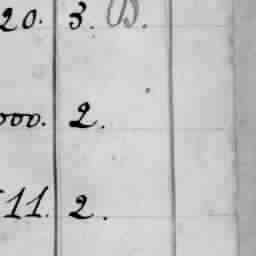 20. 3.
000. 2.
11. 2.